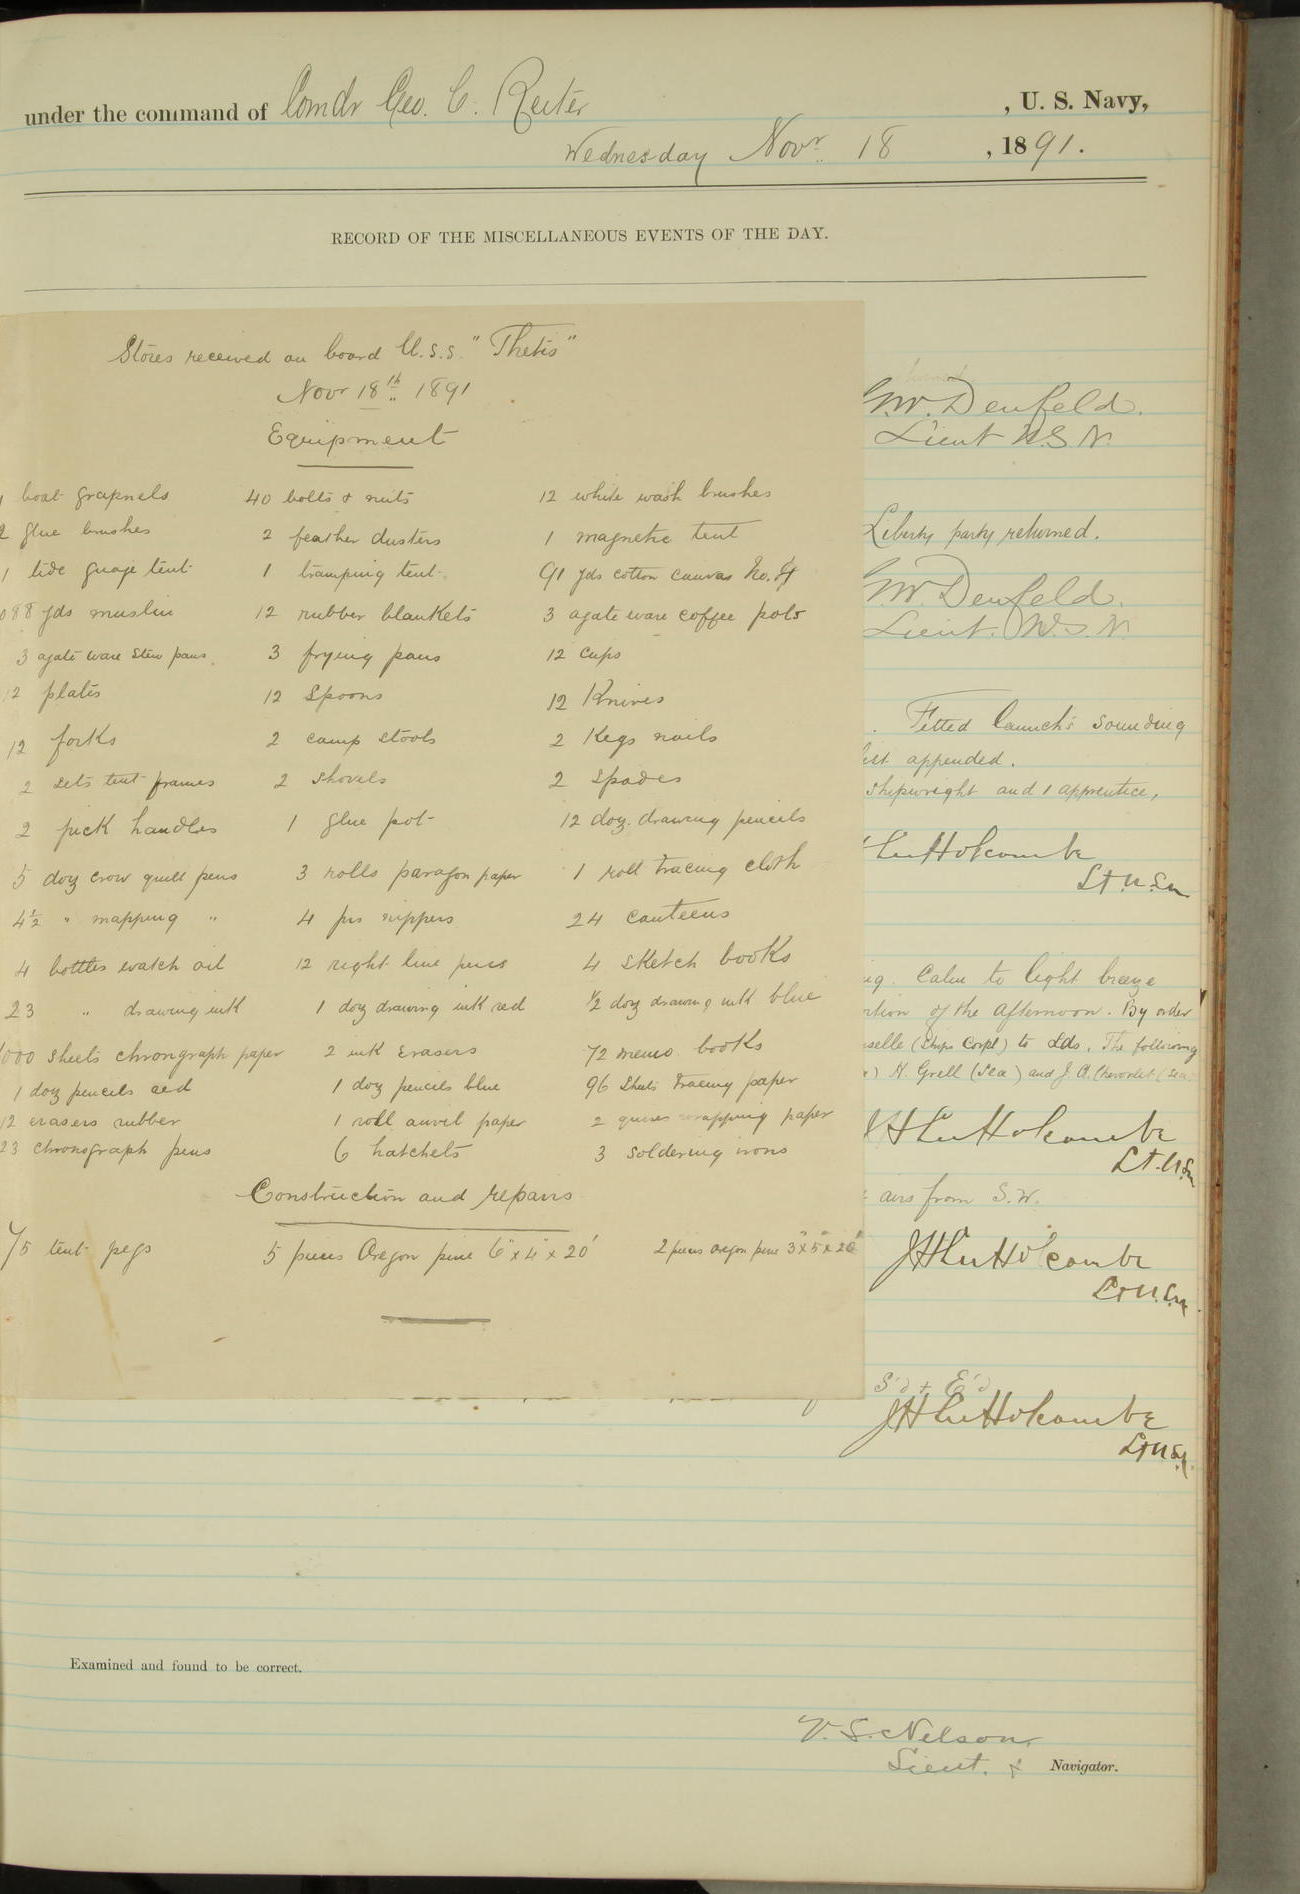 under the command of Comdr Geo. C. Reiter , U. S. Navy,
Wednesday Novr. 18 , 1891.
RECORD OF THE MISCELLANEOUS EVENTS OF THE DAY.
Stores received on board U.S.S. "Thetis"
Novr 18th 1891
Equipment
boat grapnels 40 bolts & nuts 12 white wash brushes
2 glue brushes 2 feather dusters 1 magnetic tent
1 tide guage tent 1 tramping tent 91 yds cotton canvas No. 4
yds muslin 12 rubber blankets 3 agate ware coffee pots
3 agate ware stew pans 3 frying pans 12 cups
12 plates 12 spoons 12 Knives
12 forks 2 camp stools 2 Kegs nails
2 sets tent frames 2 shovels 2 spades
2 pick handles 1 glue pot 12 doz. drawing pencils
5 doz crow quill pens 3 rolls paragon paper 1 roll tracing cloth
4½ " mapping " 4 prs nippers 24 canteens
4 bottles watch oil 12 right line pens 4 sketch books
23 " drawing ink 1 doz drawing ink red ½ doz drawing ink blue
1000 sheets chronograph paper 2 ink erasers 72 memo. books
1 doz pencils red 1 doz pencils blue 96 sheets tracing paper
12 erasers rubber 1 roll anvil paper 2 quires wrapping paper
23 chronograph pens 6 hatchets 3 soldering irons
Construction and repairs
75 tent pegs 5 pieces Oregon pine 6" x 4" x 20' 2 pieces oregon pine 3" x 5" x 20'
G.W. Denfeld.
Lieut U.S.N.
Liberty party returned.
G.W. Denfeld.
Lieut. U.S.N.
. Fitted launch's sounding
list appended.
shipwright and 1 apprentice,
J H L Holcombe
Lt. U.S.N
Calm to light breeze
portion of the afternoon. By order
(Ships Corpl) to 2ds. The following
N. Grell (Sea) and J. A. Chevorlet (Sea
J H L Holcombe
Lt. U.S.N
airs from S.W.
J H L Holcombe
Lt U.S.N.
S'd & E'd
J H L Holcombe
Lt U.S.N.
Examined and found to be correct.
V. S. Nelson,
Lieut. & Navigator.